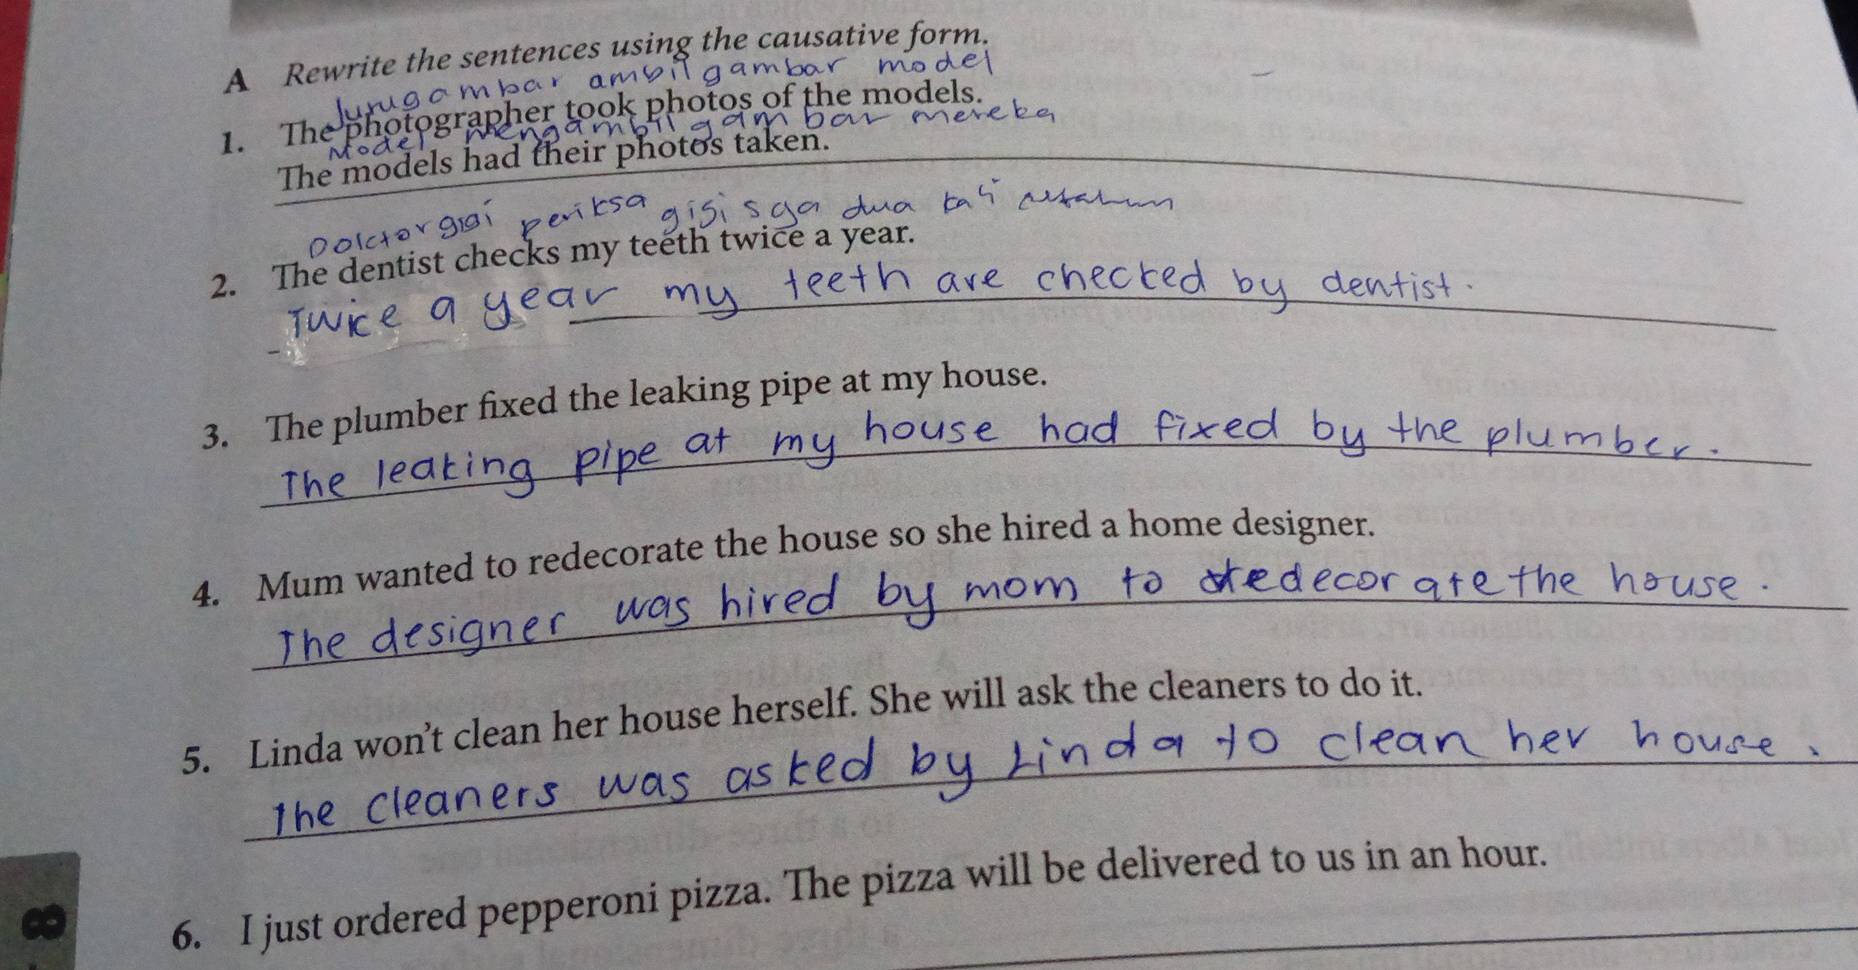 A Rewrite the sentences using the causative form.
Jurugambar ambil gambar model
1. The photographer took photos of the models.
Model mengambil gambar mereka
The models had their photos taken.
Doktor gigi periksa gigi dua kali
2. The dentist checks my teeth twice a year.
Twice a year my teeth are checked by dentist.
3. The plumber fixed the leaking pipe at my house.
The leaking pipe at my house had fixed by the plumber.
4. Mum wanted to redecorate the house so she hired a home designer.
The designer was hired by mom to redecorate the house.
5. Linda won't clean her house herself. She will ask the cleaners to do it.
The cleaners was asked by Linda to clean her house.
6. I just ordered pepperoni pizza. The pizza will be delivered to us in an hour.
8